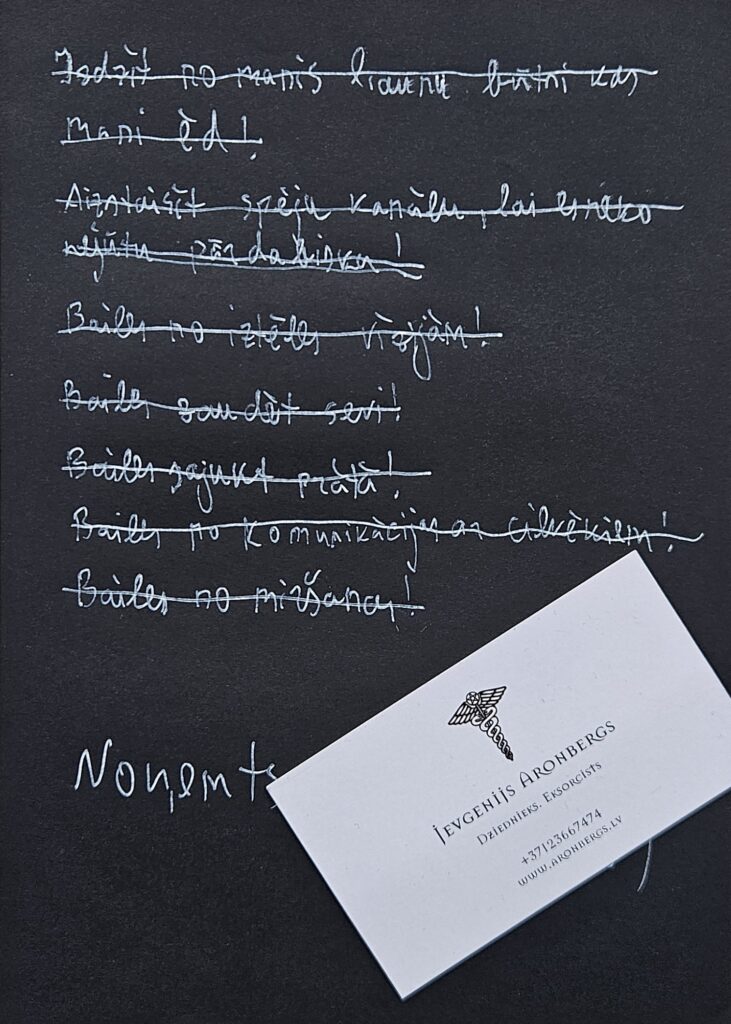 Izdzīt no manis ļaunu būtni kas
mani ēd!
Aiztaisīt spēju kanālu, lai es neko
nejūtu pārdabisku!
Bailes no iztēles vīzijām!
Bailes zaudēt sevi!
Bailes sajukt prātā!
Bailes no komunikācijas ar cilvēkiem!
Bailes no miršanas!
Noņemts
JEVGENIJS ARONBERGS
DZIEDNIEKS. EKSORCISTS
+37123667474
WWW.ARONBERGS.LV